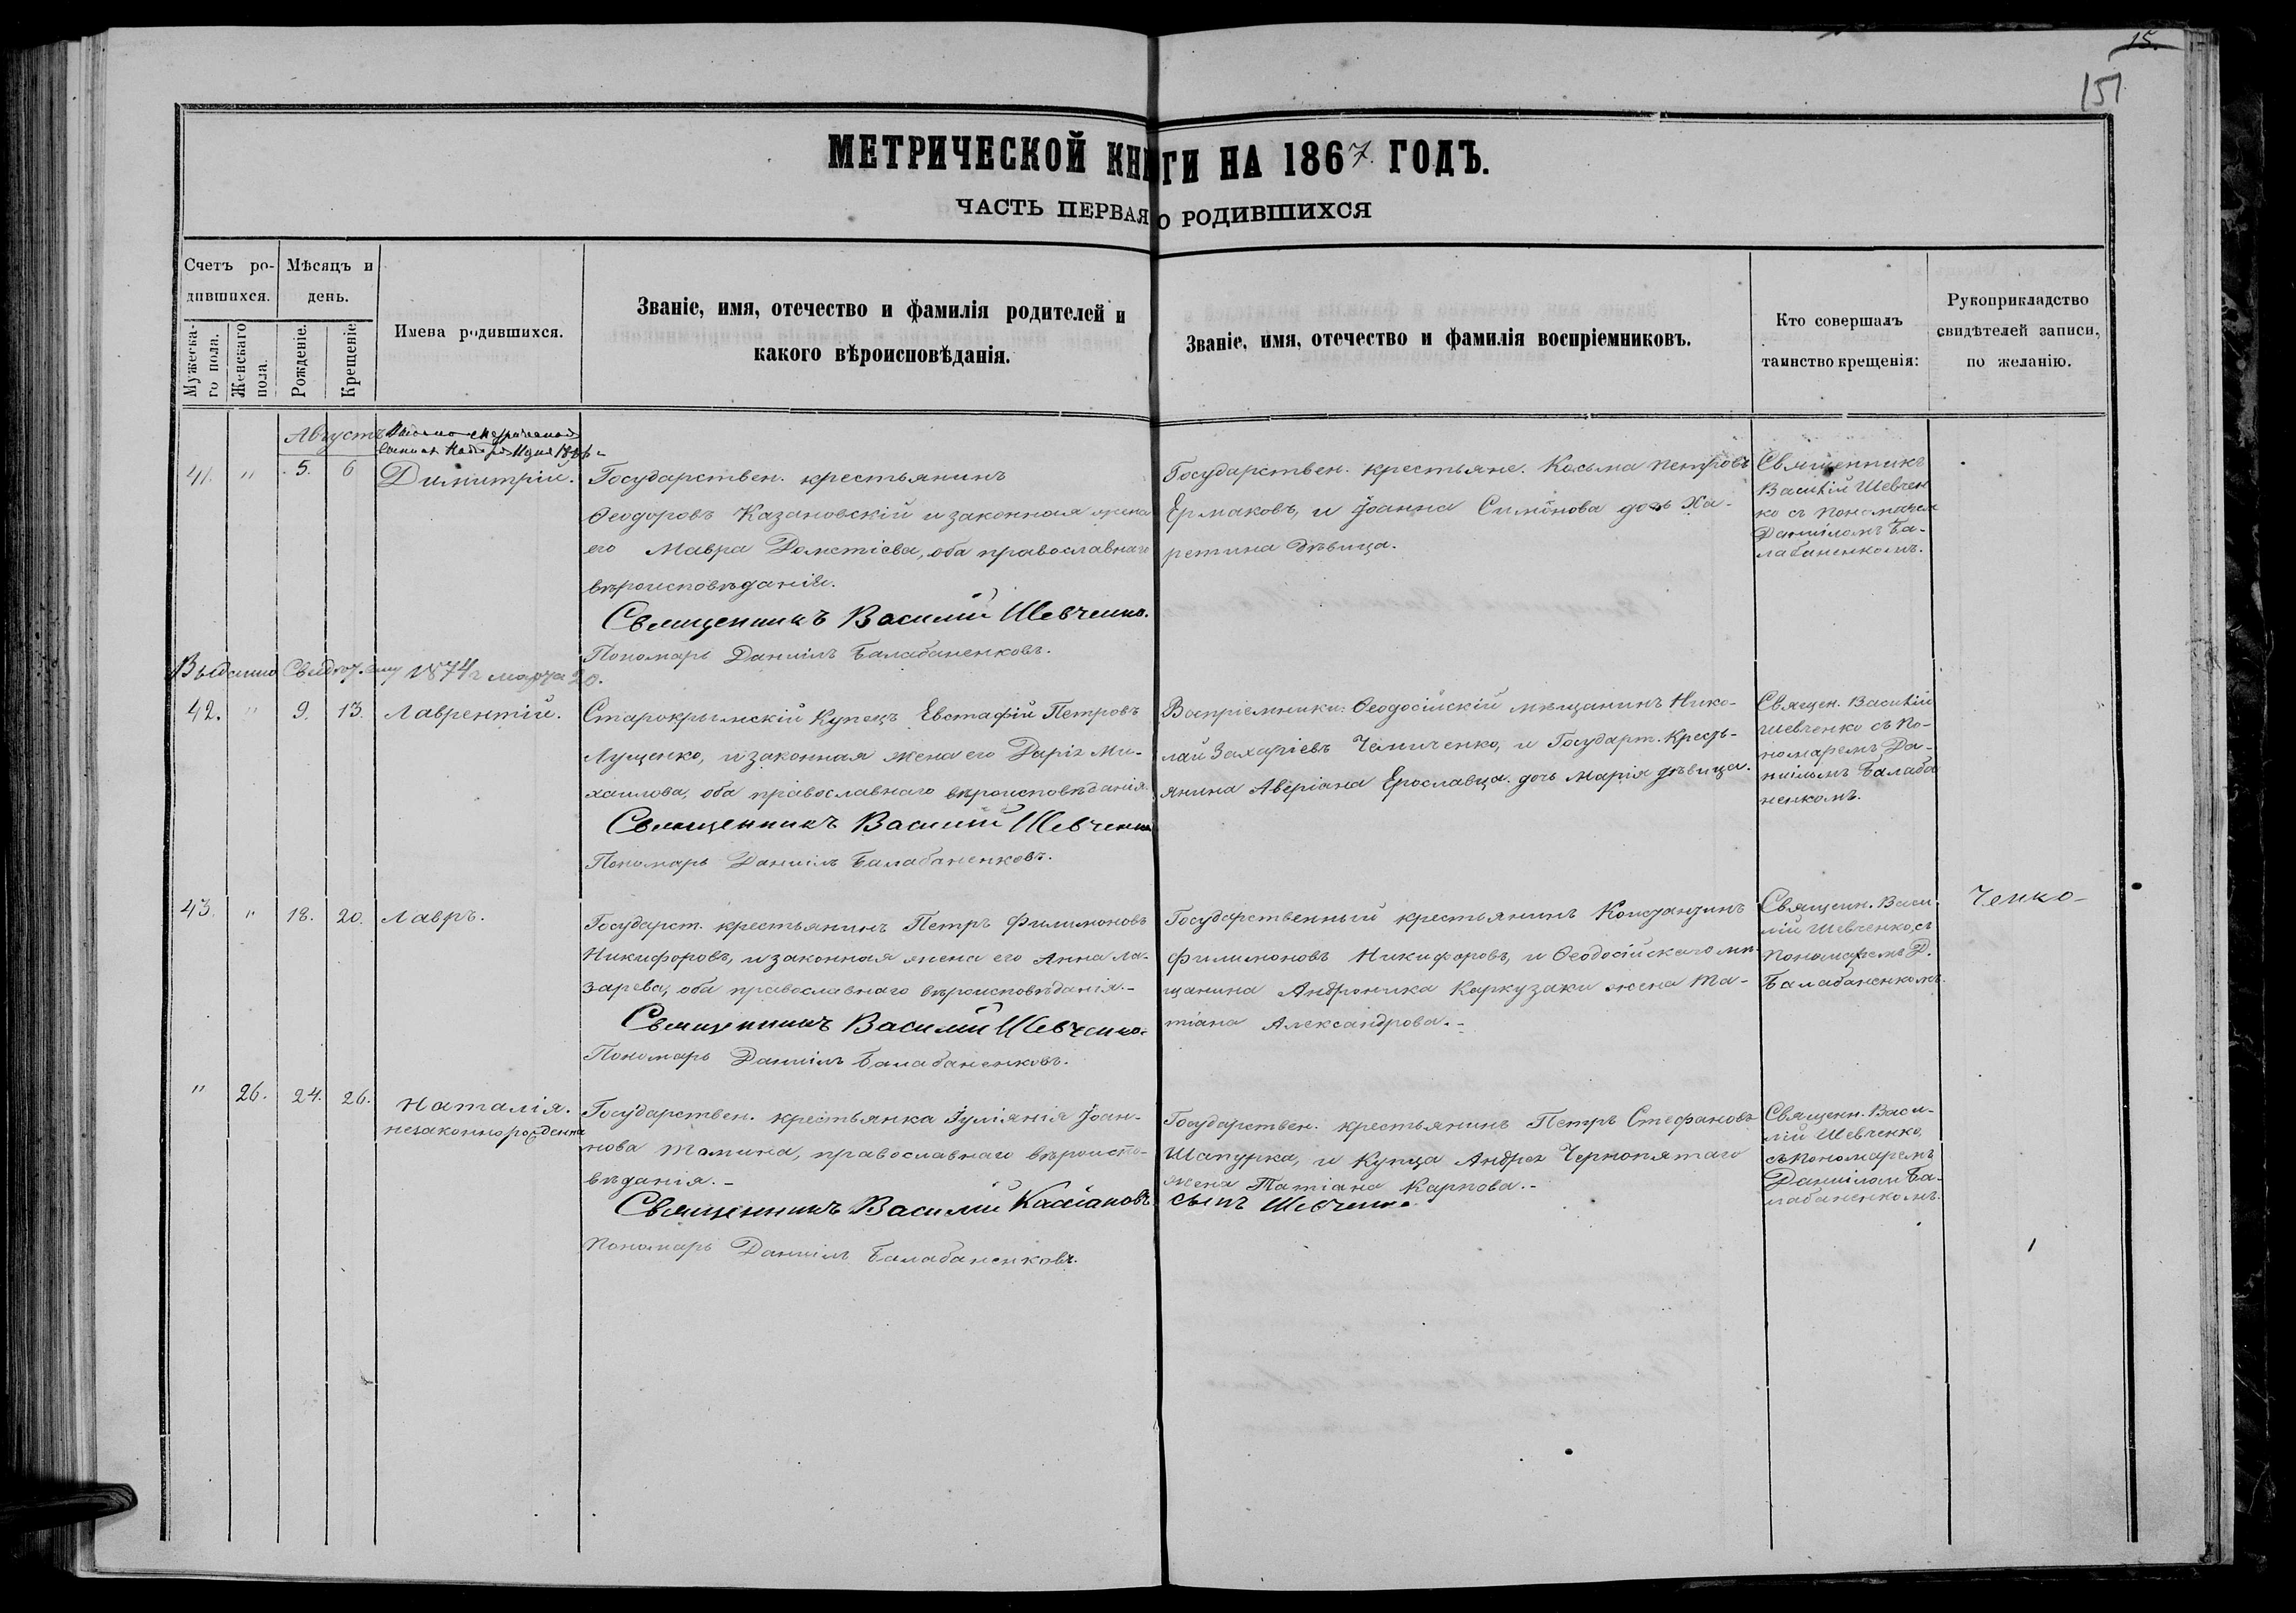 15.
151
МЕТРИЧЕСКОЙ КНИГИ НА 1867. ГОДЪ.
ЧАСТЬ ПЕРВАЯ О РОДИВШИХСЯ
Счетъ ро-
дившихся.
Мужеска-
го пола.
Женскаго
пола.
Мѣсяцъ и
день.
Рожденіе.
Крещеніе
Имена родившихся.
Званіе, имя, отечество и фамилія родителей и
какого вѣроисповѣданія.
Званіе, имя, отечество и фамилія воспріемниковъ.
Кто совершалъ
таинство крещенія:
Рукоприкладство
свидѣтелей записи,
по желанію.
Августъ
41. " 5. 6 Димитрій.
Государствен. крестьянинъ
Ѳеодоровъ Казановскій и законная жена
его Мавра Дометіева, оба православнаго
вѣроисповѣданія.
Священникъ Василій Шевченко.
Пономарь Даніилъ Балабаненковъ.
Государствен. крестьяне. Косьма Петровъ
Ермаковъ, и Іоанна Симонова дочь Ха-
ретина дѣвица.
Священникъ
Василій Шевчен
ко съ пономаремъ
Даніиломъ Ба-
лабаненкомъ.
Выданно 1874 г марта 20.
42. " 9. 13. Лаврентій.
Старокрымскій Купецъ Евстафій Петровъ
Лущенко, и законная жена его Дарія Ми-
хаилова, оба православнаго вѣроисповѣданія.
Священникъ Василій Шевченко
Пономарь Даніилъ Балабаненковъ.
Воспріемники: Ѳеодосійскій мѣщанинъ Нико-
лай Захаріевъ Чемиченко, и Государт. Кресть-
янина Аверіана Ерославца. дочь Марія дѣвица.
Священ. Василій
Шевченко съ По-
номаремъ Да-
ніиломъ Балаба
ненкомъ.
43. " 18. 20. Лавръ.
Государст. крестьянинъ Петръ Филимоновъ
Никифоровъ, и законная жена его Анна Ла-
зарева, оба православнаго вѣроисповѣданія.-
Священникъ Василій Шевченко.
Пономарь Даніилъ Балабаненковъ.
Государственный крестьянинъ Константинъ
Филимоновъ Никифоровъ, и Ѳеодосійскаго мѣ-
щанина Андроника Каркузаки жена Та-
тіана Александрова.-
Священн. Васи-
лій Шевченко, съ
пономаремъ Д.
Балабаненкомъ.
Ченко-
" 26. 24. 26. Наталія.
незаконнорожденна
Государствен. крестьянка Іуліанія Іоан-
нова Томина, православнаго вѣроиспо-
вѣданія.-
Священникъ Василій Кассіановъ
сынъ Шевченко
Пономарь Даніилъ Балабаненковъ.
Государствен. крестьянинъ Петръ Стефановъ
Шапурка, и Купца Андрея Чернопятаго
жена Татіана Карпова.-
Священн. Васи-
лій Шевченко,
съ пономаремъ
Даніилом Ба-
лабаненкомъ.